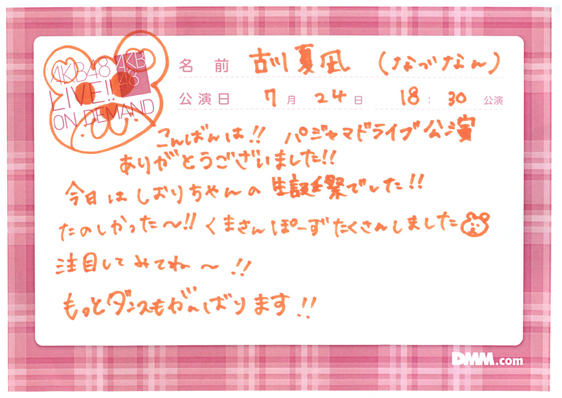 AKB48
LIVE!!
ON DEMAND
AKB
48
名前 古川夏凪 (なつなん)
公演日 7月24日 18:30公演
こんばんは!! パジャマドライブ公演
ありがとうございました!!
今日はしおりちゃんの生誕祭でした!!
たのしかった〜!! くまさんぽーずたくさんしました
注目してみてね〜!!
もっとダンスもがんばります!!
DMM.com